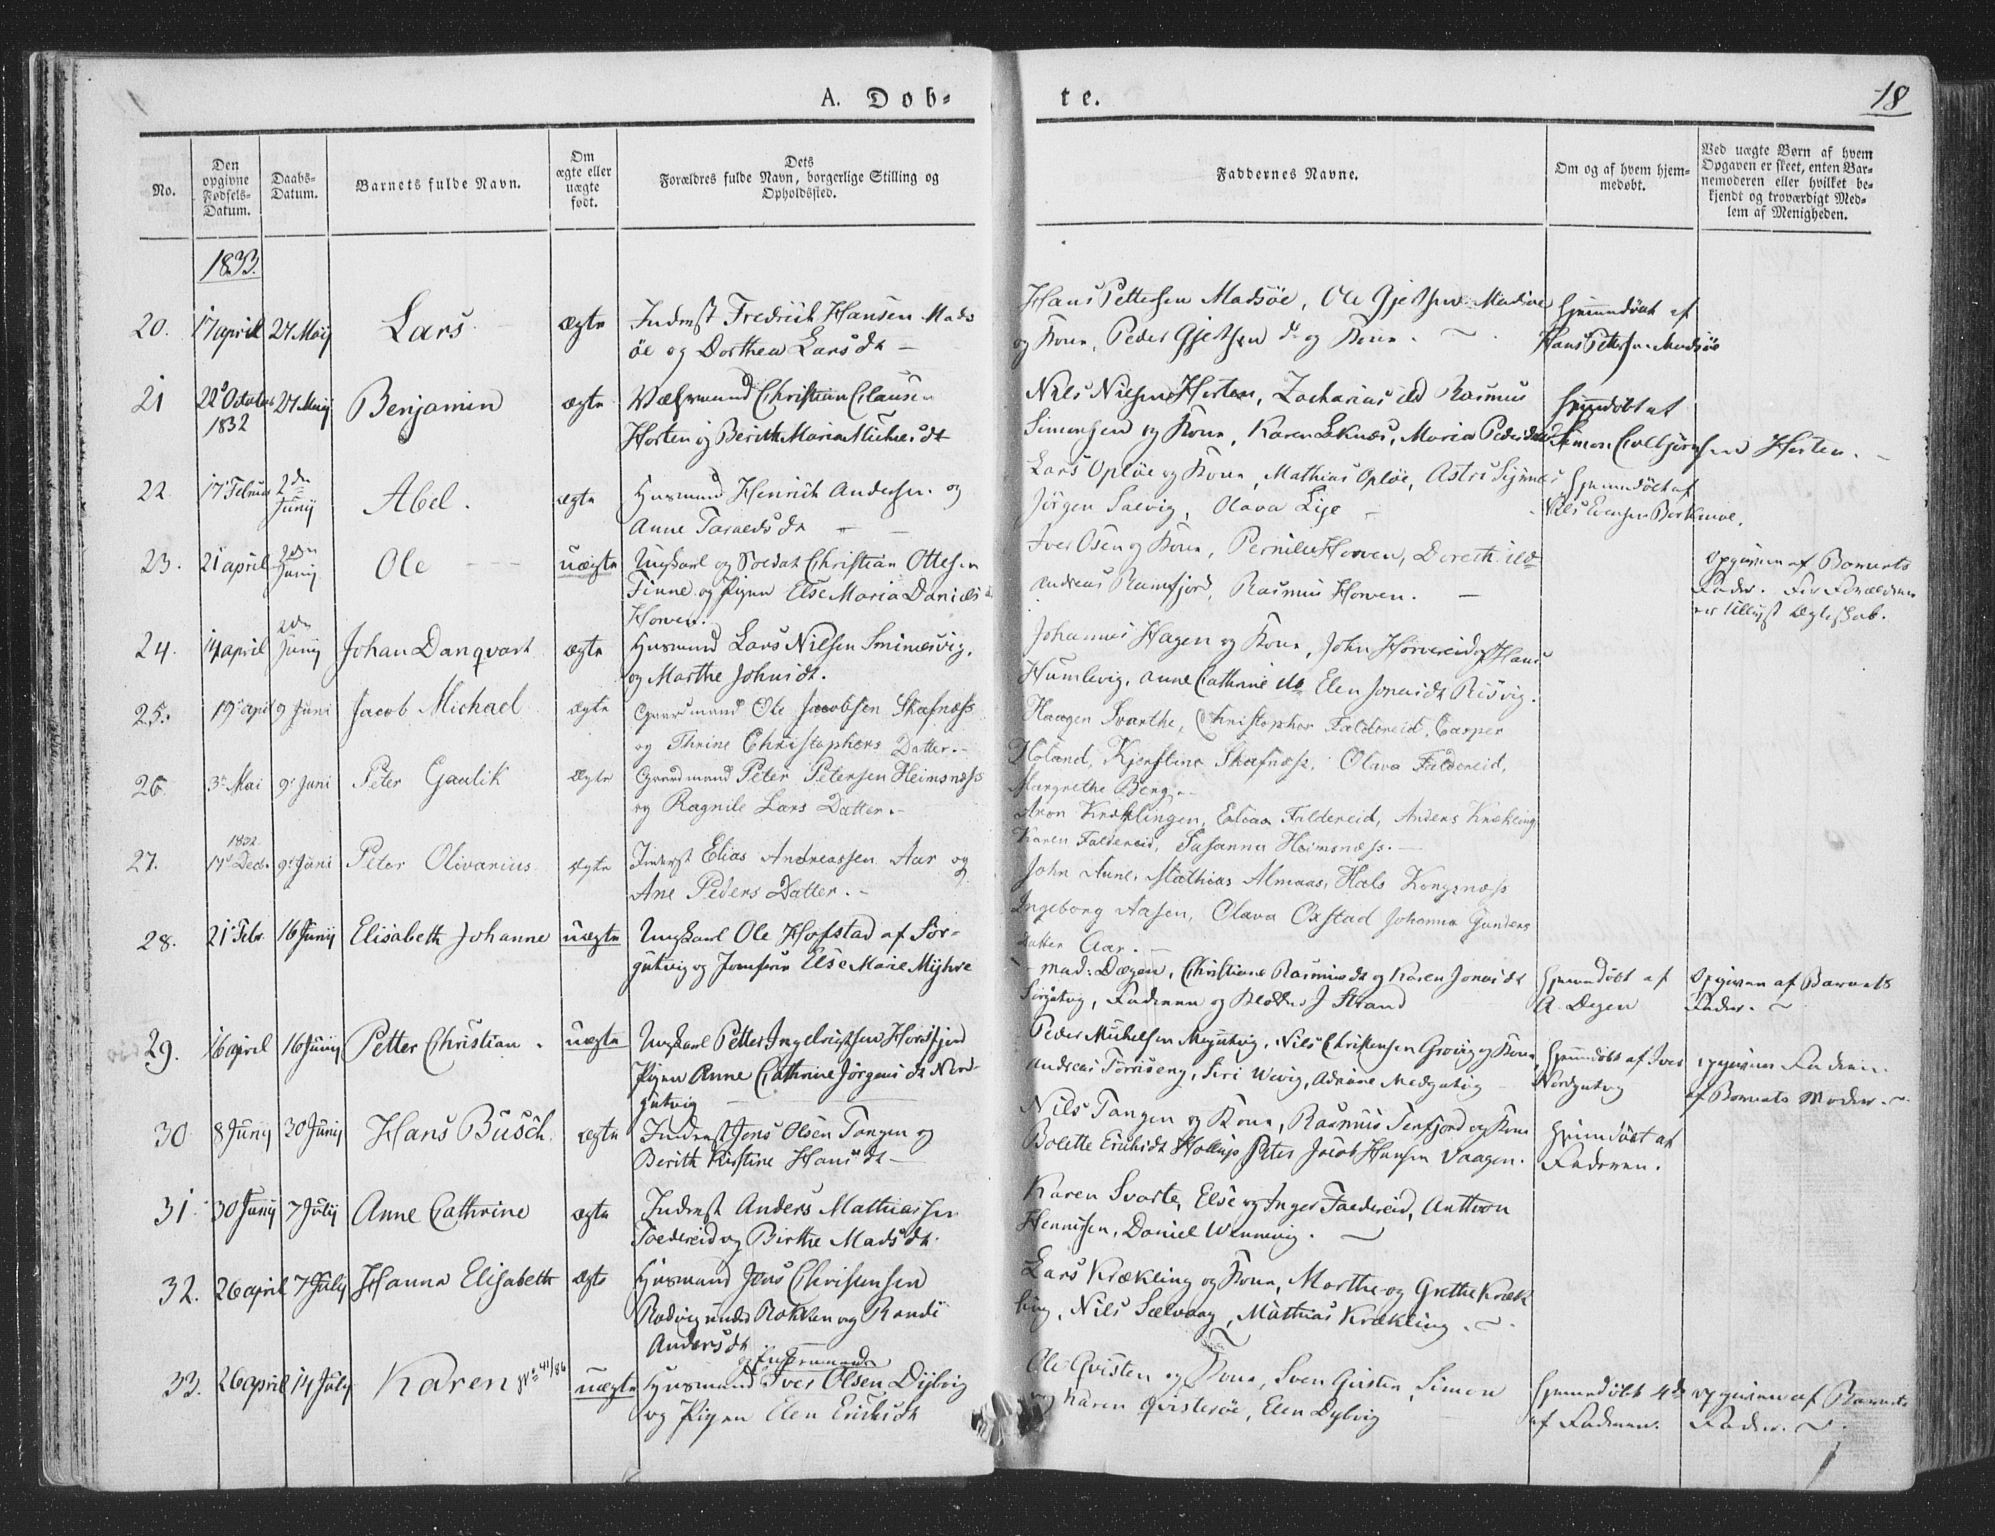 A. Døb-
te.
18
No.
Den opgivne Fødsels-Datum.
Daabs-Datum.
Barnets fulde Navn.
Om ægte eller uægte født.
Dets Forældres fulde Navn, borgerlige Stilling og Opholdssted.
Faddernes Navne.
Om og af hvem hjem-medøbt.
Ved uægte Børn af hvem Opgaven er skeet, enten Bar-nemoderen eller hvilket be-kjendt og troværdigt Med-lem af Menigheden.
1833.
20. 17 april 27 Maij Lars ægte Inderst Fredrich Hansen Mads
øe og Dorthea Larsdtr
Hans Pettersen Madsøe, Ole Gjertsen Madsøe
og Kone, Peder Gjertsen og Kone.
Hjemmedøbt af
Hans Pettersen Madsøe
21 22 October 1832 27 Maij Benjamin ægte Christian Clausen
Horten og Berith Maria Michelsdtr
Nils Nilsen Horten, Zacharias Rasmus
Simonsen og Kone, Karen Leknæs, Maria Pedersdtr
Hjemmedøbt af
Simon Horten.
22 17 Februar 2den Junij Abel. ægte Husmand Henrich Andersen og
Anne
Lars Opløe og Kone, Mathias Opløe, Astri
Jørgen Salvig, Olava
Hjemmedøbt af
Nils
23. 21 april 2den Junij Ole uægte Ungkarl og Soldat Christian Ottesen
Finne og Pigen Else Maria Daniels
Horven.
Iver Osen og Kone, Pernille Horven, Dereth
Andreas Ramfjord, Rasmus Horven.
Opgiven af Barnets
Fader. For Forældrene
er tillyst Ægteskab.
24. 14 april Junij Johan Danqvart ægte Husmand Lars Nilsen
og Marthe Johnsdtr.
Johannes Hagen og Kone, John Horvereid og Hans
Humlevig, Anne Cathrine Elen Jonasdtr Risvig.
25. 19 april 9 Juni Jacob Michael ægte Gaardmand Ole Jacobsen Skafnæss
og Thrine Christophers Datter.
Haagen Svarthe, Christopher Faldereid, Casper
Høland, Kjerstina Skafnæss, Olava Faldereid,
Margrethe Berg.
26. 3 Mai 9 Juni Peter Gaulik ægte Gaardmand Peter Petersen Heimsnæss
og Ragnile Lars Datter.
Aron Krækling en, Elias Faldereid, Anders Krækling
Karen Faldereid, Susanna Heimsnæss.
27. 1832 17 Decbr 9 Juni Peter Olivanius ægte Inderst Elias Andreassen Aar og
Ane Peders Datter.
John Aune, Mathias Almaas, Hals Kongsnæss
Ingeborg Aasen, Olava Oxstad Johanna Gunders
Datter Aar.
28. 21 Febr. 16 Junij Elisabeth Johanne uægte Ungkarl Ole Hofstad af Sør-
gutvig og Jomfrue Else Marie Myhre
Mad: Dægen, Christiane Rasmusdtr og Karen Jonasdtr
Sørgutvig, Faderen og J Strand
Hjemmedøbt af
A. Degen
Opgiven af Barnets
Fader.
29. 16 april 16 Junij Petter Christian uægte Ungkarl Petter Ingebrigtsen
Pigen Anne Cathrine Jørgensdtr Nord-
gutvig
Peder Michelsen Megutvig, Nils Christensen og Kone
Andreas Siri Adriane Medgutvig
Hjemmedøbt af Iver
Nordgutvig
Opgiven Faderen
af Barnets Moder.
30 8 Junij 30 Junij Hans Busch ægte Inderst Jens Olsen Tangen og
Berith Kirstine Hansdtr
Nils Tangen og Kone, Rasmus Terfjord og Kone
Bolette Erichsdtr Peter Jacob Hansen Vaagen.
Hjemmedøbt af
Faderen.
31 30 Junij 7 Julij Anne Cathrine ægte Inderst Anders Mathiassen
Foldereid og Birthe Madsdtr.
Karen Svarte, Else og Inger Foldereid, Anthon
Henrissen, Daniel
32. 26 april 7 July Hanna Elisabeth ægte Husmand Jens Christensen
Rødvig under Rokken og Randi
Andersdtr
Lars Krækling og Kone, Marthe og Grethe Kræk
ling, Nils Sælvaag, Mathias Krækling.
33. 26 april 14 July Karen 41/86 uægte Husmand Iver Olsen Dybvig
og Pigen Elen Erichsdtr
Ole Qvisten og Kone, Sven Qvisten, Simon
og Karen Qvisterøe, Elen Dybvig
Hjemmedøbt
af Faderen.
Opgiven af Barnets
Fader.